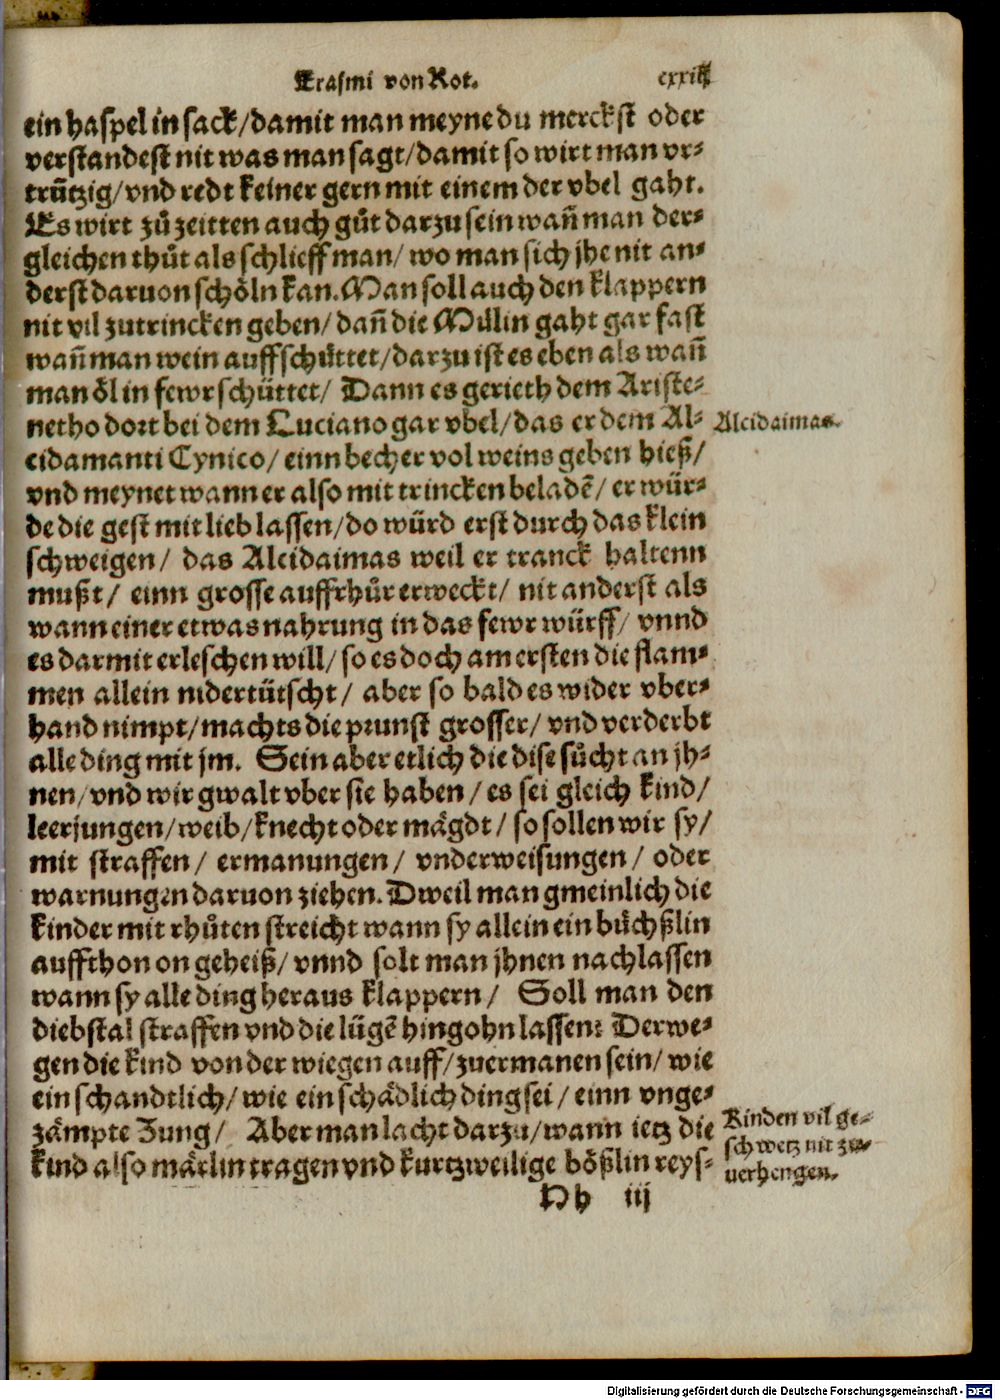 Erasmi von Rot. cxxiij
ein haspel in sack/damit man meyne du merckst oder
verstandest nit was man sagt/damit so wirt man vr⸗
trützig/vnd redt keiner gern mit einem der vbel gaht.
Es wirt zů zeitten auch gůt darzu sein wañ man der⸗
gleichen thůt als schlieff man/ wo man sich jhe nit an⸗
derst daruon schöln kan. Man soll auch den klappern
nit vil zutrincken geben/ dañ die Mülin gaht gar fast
wañ man wein auffschüttet/darzu ist es eben als wañ
man öl in fewr schüttet/ Dann es gerieth dem Ariste⸗
netho dort bei dem Luciano gar vbel/das er dem Al⸗
cidamanti Cynico/ einn becher vol weins geben hieß/
vnd meynet wann er also mit trincken beladē/ er wür⸗
de die gest mit lieb lassen/do würd erst durch das klein
schweigen/ das Alcidaimas weil er tranck haltenn
mußt/ einn grosse auffrhůr erweckt/ nit anderst als
wann einer etwas nahrung in das fewr würff/ vnnd
es darmit erleschen will/ so es doch am ersten die flam⸗
men allein nidertütscht/ aber so bald es wider vber⸗
hand nimpt/machts die prunst grosser/ vnd verderbt
alle ding mit jm. Sein aber etlich die dise sücht an jh⸗
nen/vnd wir gwalt vber sie haben/ es sei gleich kind/
leerjungen/weib/knecht oder mägdt/ so sollen wir sy/
mit straffen/ ermanungen/ vnderweisungen/ oder
warnungen daruon ziehen. Dweil man gmeinlich die
kinder mit rhůten streicht wann sy allein ein büchßlin
auffthon on geheiß/ vnnd solt man jhnen nachlassen
wann sy alle ding heraus klappern/ Soll man den
diebstal straffen vnd die lügē hingohn lassen? Derwe⸗
gen die kind von der wiegen auff/zuermanen sein/ wie
ein schandtlich/ wie ein schädlich ding sei/ einn vnge⸗
zämpte Zung/ Aber man lacht darzu/wann ietz die
kind also märlin tragen vnd kurtzweilige bößlin reys⸗
Hh iij
Alcidaimas.
Kinden vil ge⸗
schwetz nit zu⸗
verhengen.
Digitalisierung gefördert durch die Deutsche Forschungsgemeinschaft - DFG